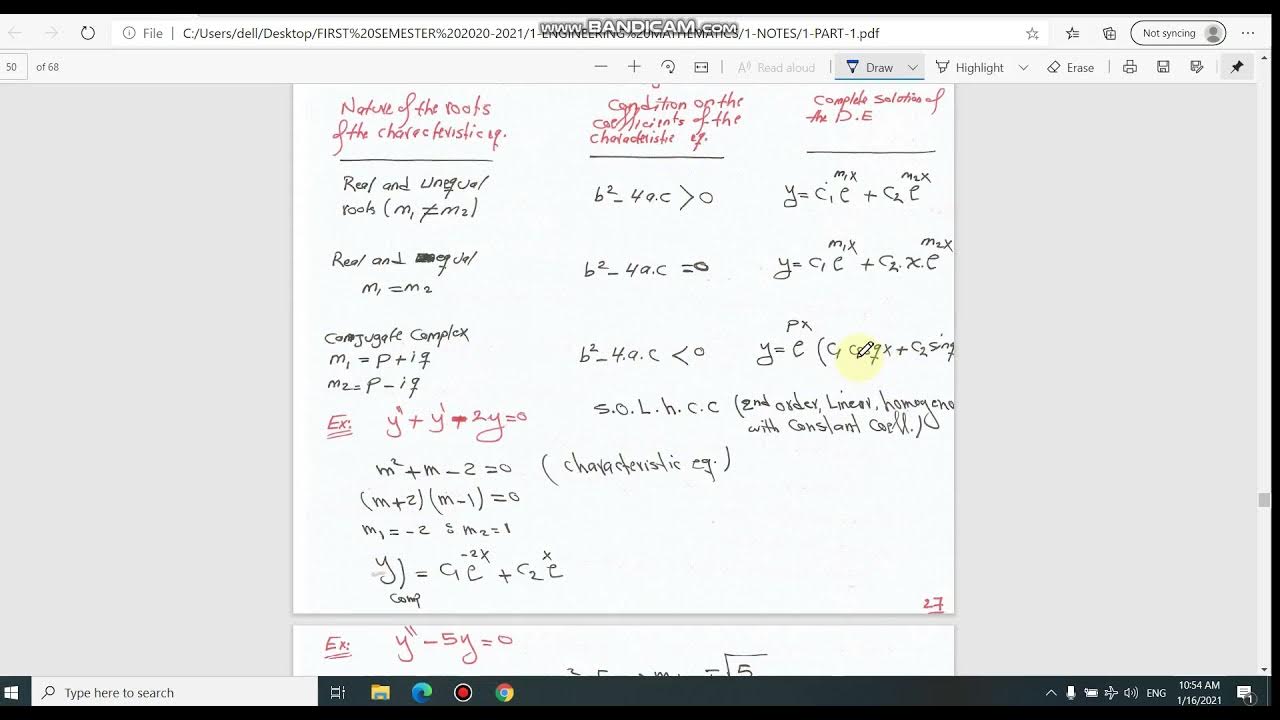 www.BANDICAM.com
File C:/Users/dell/Desktop/FIRST%20SEMESTER%202020-2021/1-ENGINEERING%20MATHEMATICS/1-NOTES/1-PART-1.pdf Not syncing
50 of 68 Read aloud Draw Highlight Erase
Nature of the roots
of the characteristic eq.
Condition on the
coefficients of the
characteristic eq.
Complete solution of
the D.E
Real and unequal
roots (m₁ ≠ m₂)
b² - 4a.c > 0
y = c₁e^{m₁x} + c₂e^{m₂x}
Real and equal
m₁ = m₂
b² - 4a.c = 0
y = c₁e^{m₁x} + c₂.x.e^{m₂x}
Conjugate Complex
m₁ = p + iq
m₂ = p - iq
b² - 4.a.c < 0
y = e^{px} (c₁ cosqx + c₂ sinq
Ex: y'' + y' - 2y = 0
S.O.L.h.C.C (2nd order, Linear, homogeno
with constant coeff.)
m² + m - 2 = 0 (characteristic eq.)
(m+2)(m-1) = 0
m₁ = -2 & m₂ = 1
y)comp = c₁e^{-2x} + c₂e^{x}
27
Ex: y'' - 5y = 0
Type here to search
ENG
10:54 AM
1/16/2021
1